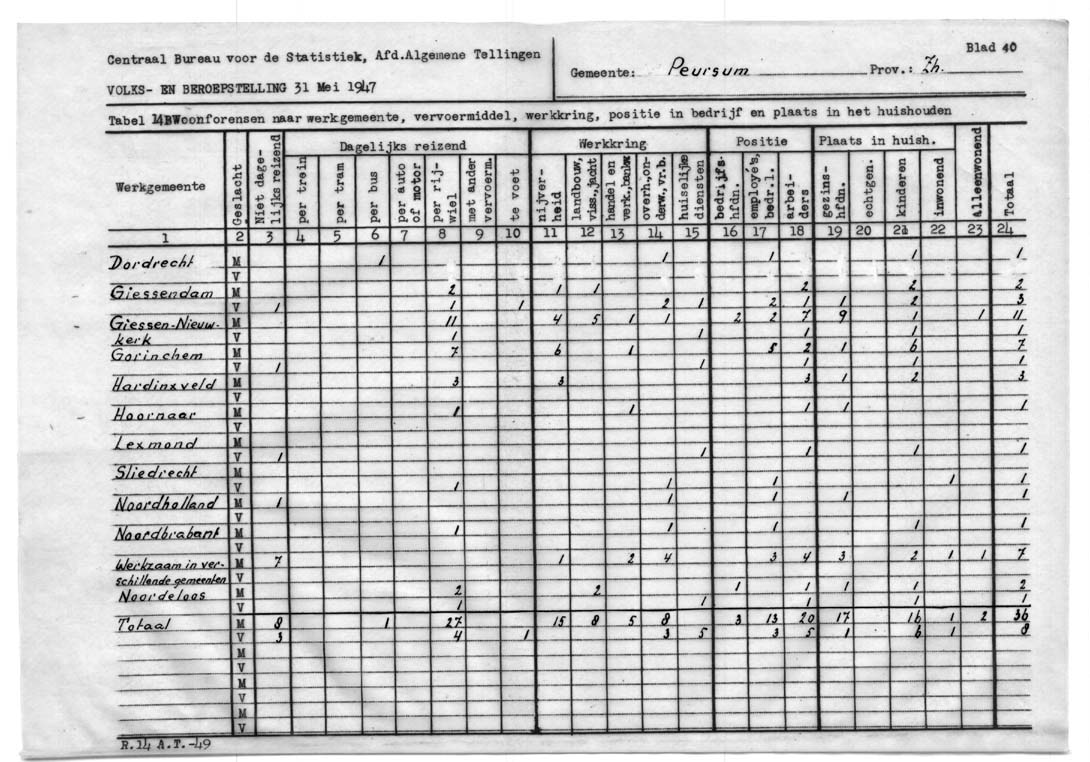 Centraal Bureau voor de Statistiek, Afd.Algemene Tellingen
Blad 40
Gemeente: Peursum Prov.: Zh.
VOLKS- EN BEROEPSTELLING 31 Mei 1947
Tabel 14BWoonforensen naar werkgemeente, vervoermiddel, werkkring, positie in bedrijf en plaats in het huishouden
Werkgemeente | Geslacht | Niet dage-lijks reizend | Dagelijks reizend | Werkkring | Positie | Plaats in huish. | Alleenwonend | Totaal
per trein | per tram | per bus | per auto of motor | per rij-wiel | met ander vervoerm. | te voet | nijver-heid | landbouw, viss.,jacht | handel en verk.,bankw. | overh.,on-derw.,vr.b. | huiselijke diensten | bedrijfs-hfdn. | employe's, bedr.l. | arbei-ders | gezins-hfdn. | echtgen. | kinderen | inwonend
1 2 3 4 5 6 7 8 9 10 11 12 13 14 15 16 17 18 19 20 21 22 23 24
Dordrecht M 1 1 1 1 1
V
Giessendam M 2 1 1 2 2 2
V 1 1 1 2 1 2 1 1 2 3
Giessen-Nieuw- M 11 4 5 1 1 2 2 7 9 1 1 11
kerk V 1 1 1 1 1
Gorinchem M 7 6 1 5 2 1 6 7
V 1 1 1 1 1
Hardinxveld M 3 3 3 1 2 3
V
Hoornaar M 1 1 1 1 1
V
Lexmond M
V 1 1 1 1 1
Sliedrecht M
V 1 1 1 1 1
Noordholland M 1 1 1 1 1
V
Noordbrabant M 1 1 1 1 1
V
Werkzaam in ver- M 7 1 2 4 3 4 3 2 1 1 7
schillende gemeenten V
Noordeloos M 2 2 1 1 1 1 2
V 1 1 1 1 1
Totaal M 8 1 27 15 8 5 8 3 13 20 17 16 1 2 36
V 3 4 1 3 5 3 5 1 6 1 8
M
V
M
V
M
V
R.14 A.T.-49